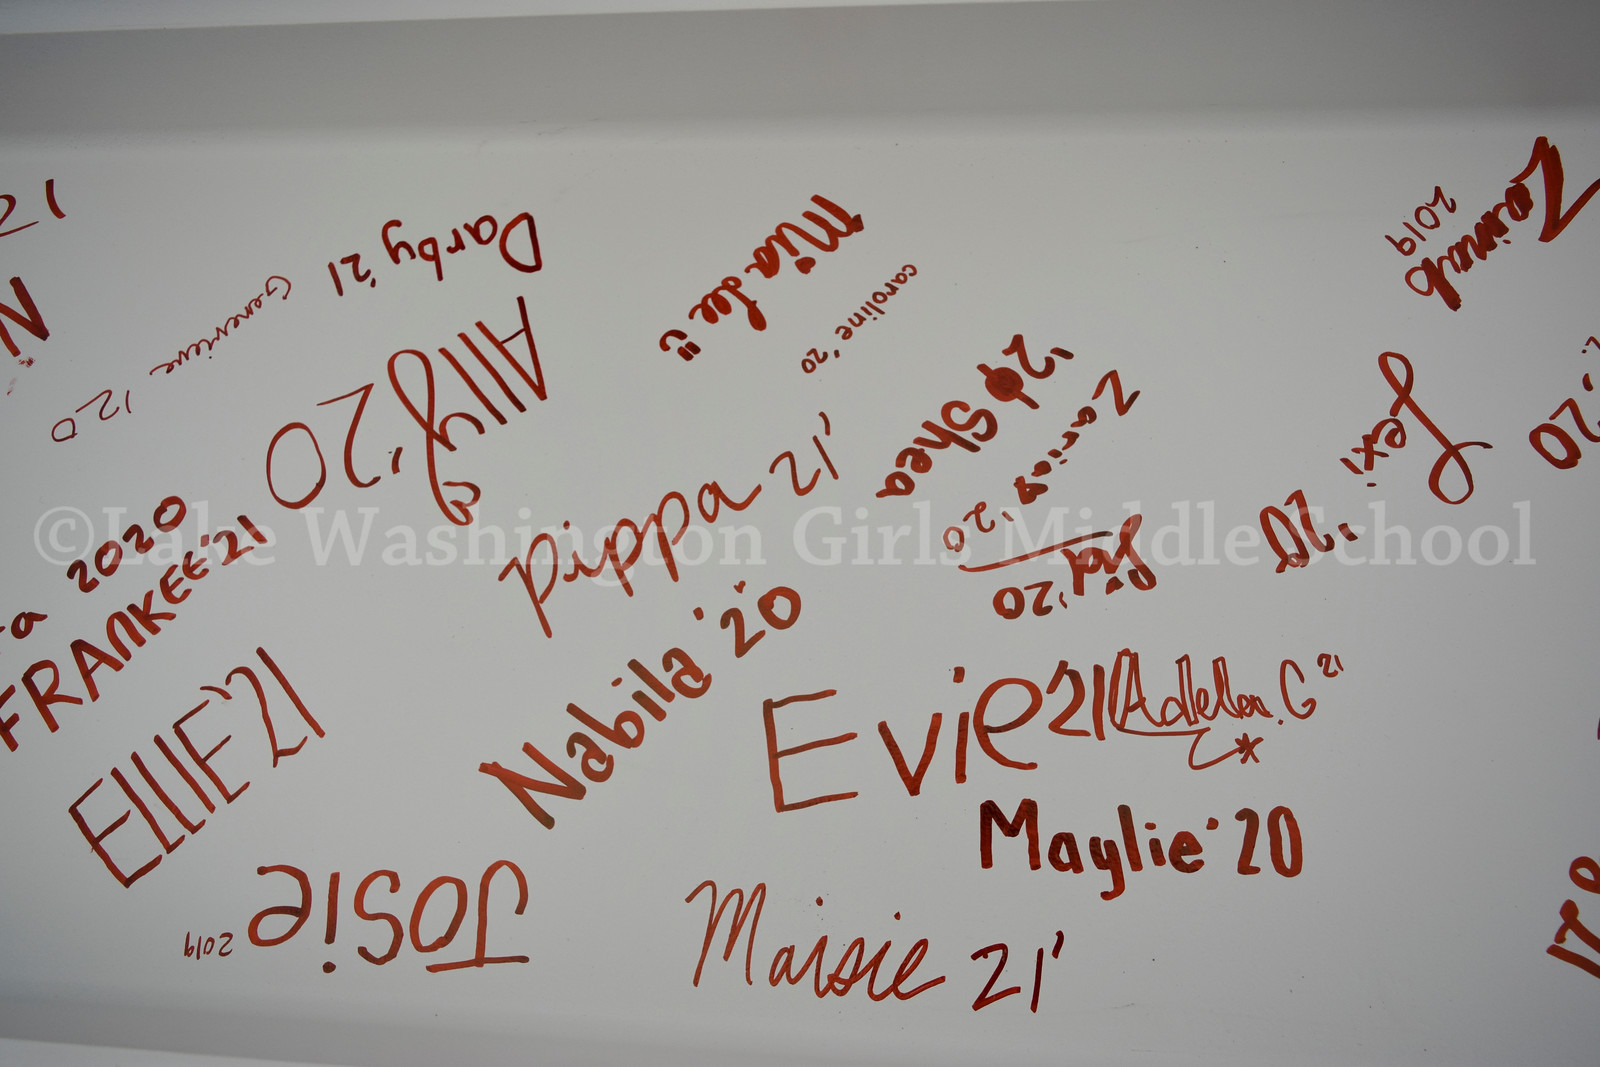 Darby '21
Genevieve '20
Ally '20
Mia Lee
caroline '20
Zeinab
2019
'20 Shea
Zaria '20
Lexi '20
'20
Pippa 21'
2020
FRANKEE '21
©Lake Washington Girls Middle School
'20
Nabila '20
ELLIE '21
Evie 21
G 21
Maylie '20
Josie 2019
Maisie 21'